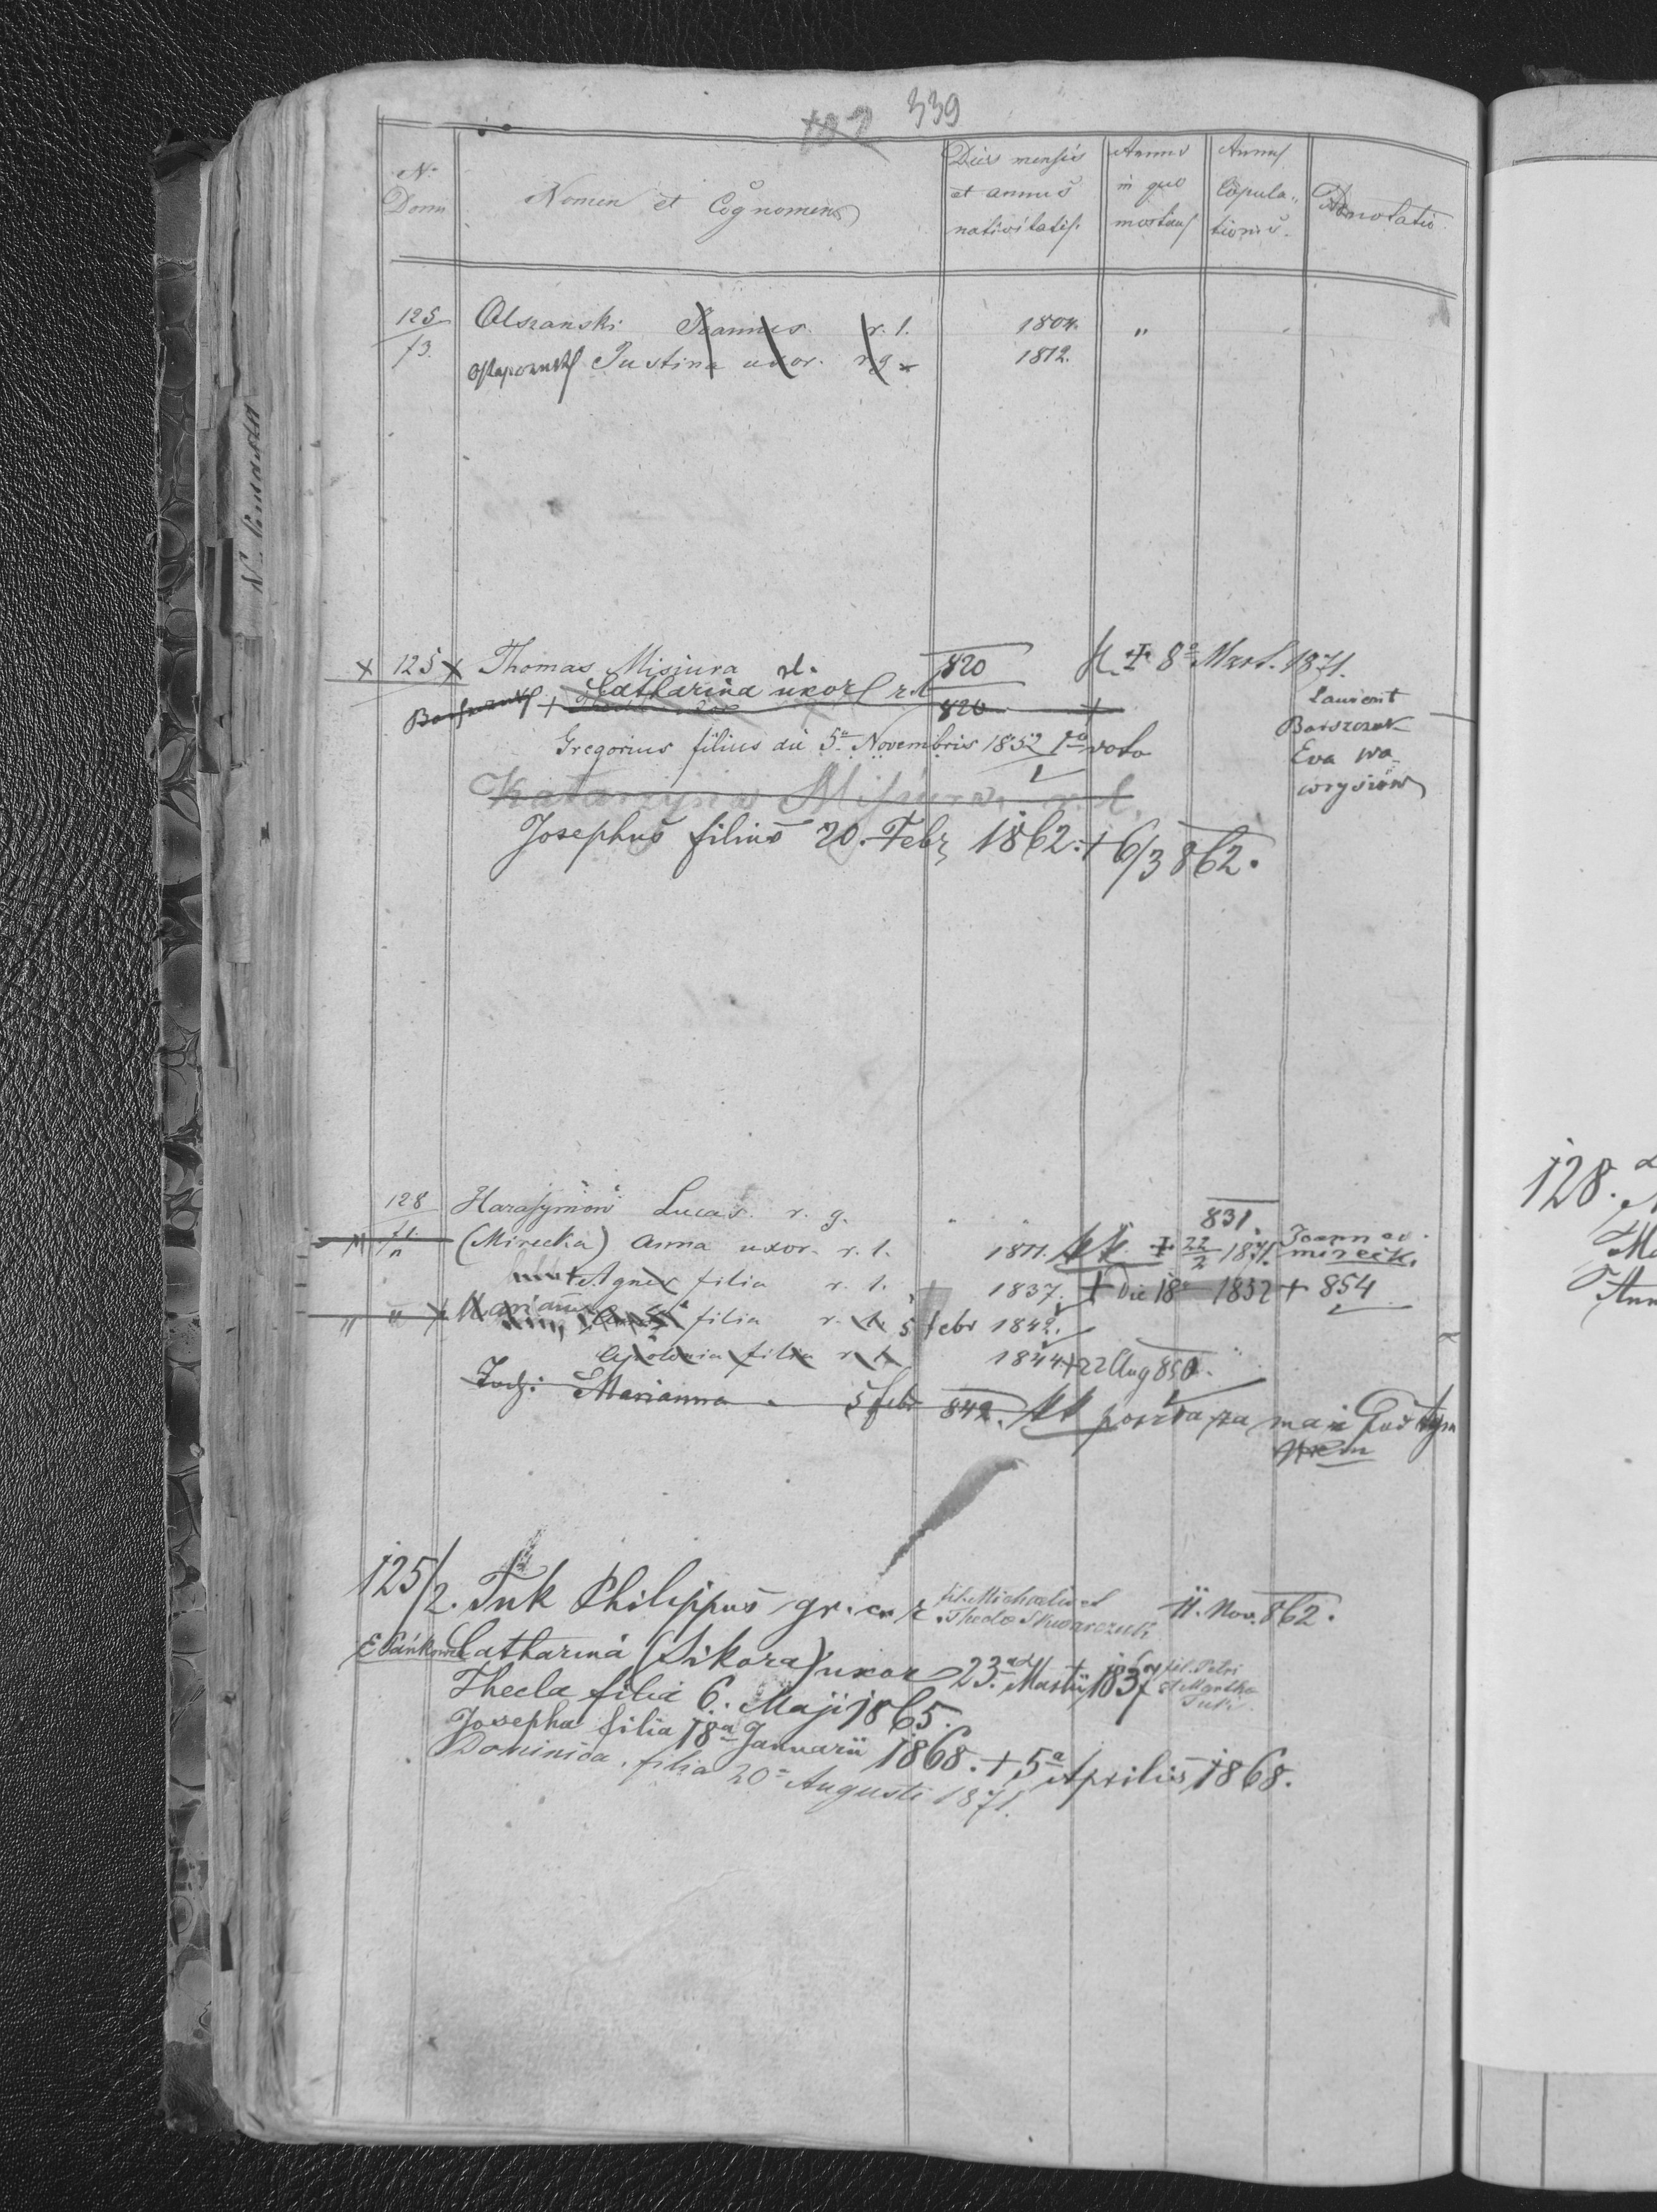 339
N.
Dom
Nomen et Cognomen
Dies mensis
et annus
nativitatis.
Annus
in quo
mortuus
Annus
Copula-
tionis.
Adnotatio
125
/3.
Olszanski Joannes r. l.
1804. "
Justina uxor. r. g.
1812.
125 Thomas Misiura rl.
820
+ 8a Mart. 1871.
Catharina uxor rl
820 +
Laurent
Barszczuk
Eva
Gregorius filius die 5a Novembris 1852 1o voto
Katarzyna Misiura r. l.
Josephus filius 20. Febr 1862. + 6/3 862.
128 Harasymów Lucas. r. g. " "
831.
(Mirecka) Anna uxor. r. l.
1811. + 22/2 1871.
Joann
Agnes filia r. l.
1837. + Die 18 1852 + 854
" " Marianna filia r. l. 5 febr 1842.
Apolonia filia r. l. 1844 + 22 Aug 850.
Marianna 5 febr 842. poszla za maż
125/2. Tuk Philippus gr. c. r.
fil. Michaelis et
Theclae
11. Nov. 862.
Catharina (Sikora) uxor 23. Martii 1837
fil. Petri
et Martha
Thecla filia 6. Maji 1865.
Josepha filia 18a Januarii 1868. + 5a Aprilis 1868.
Dominica filia 20a Augusti 1871.
128.